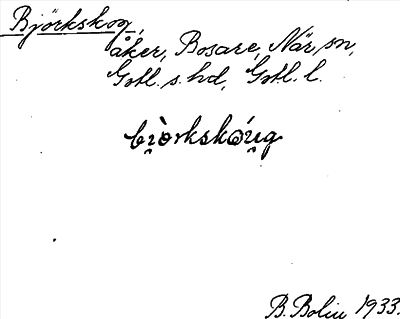 Björkskog,
åker, Bosare, När sn,
Gotl. s. hd, Gotl. l.
bi̯òrkskǫ́u̯g
B. Bolin 1933.